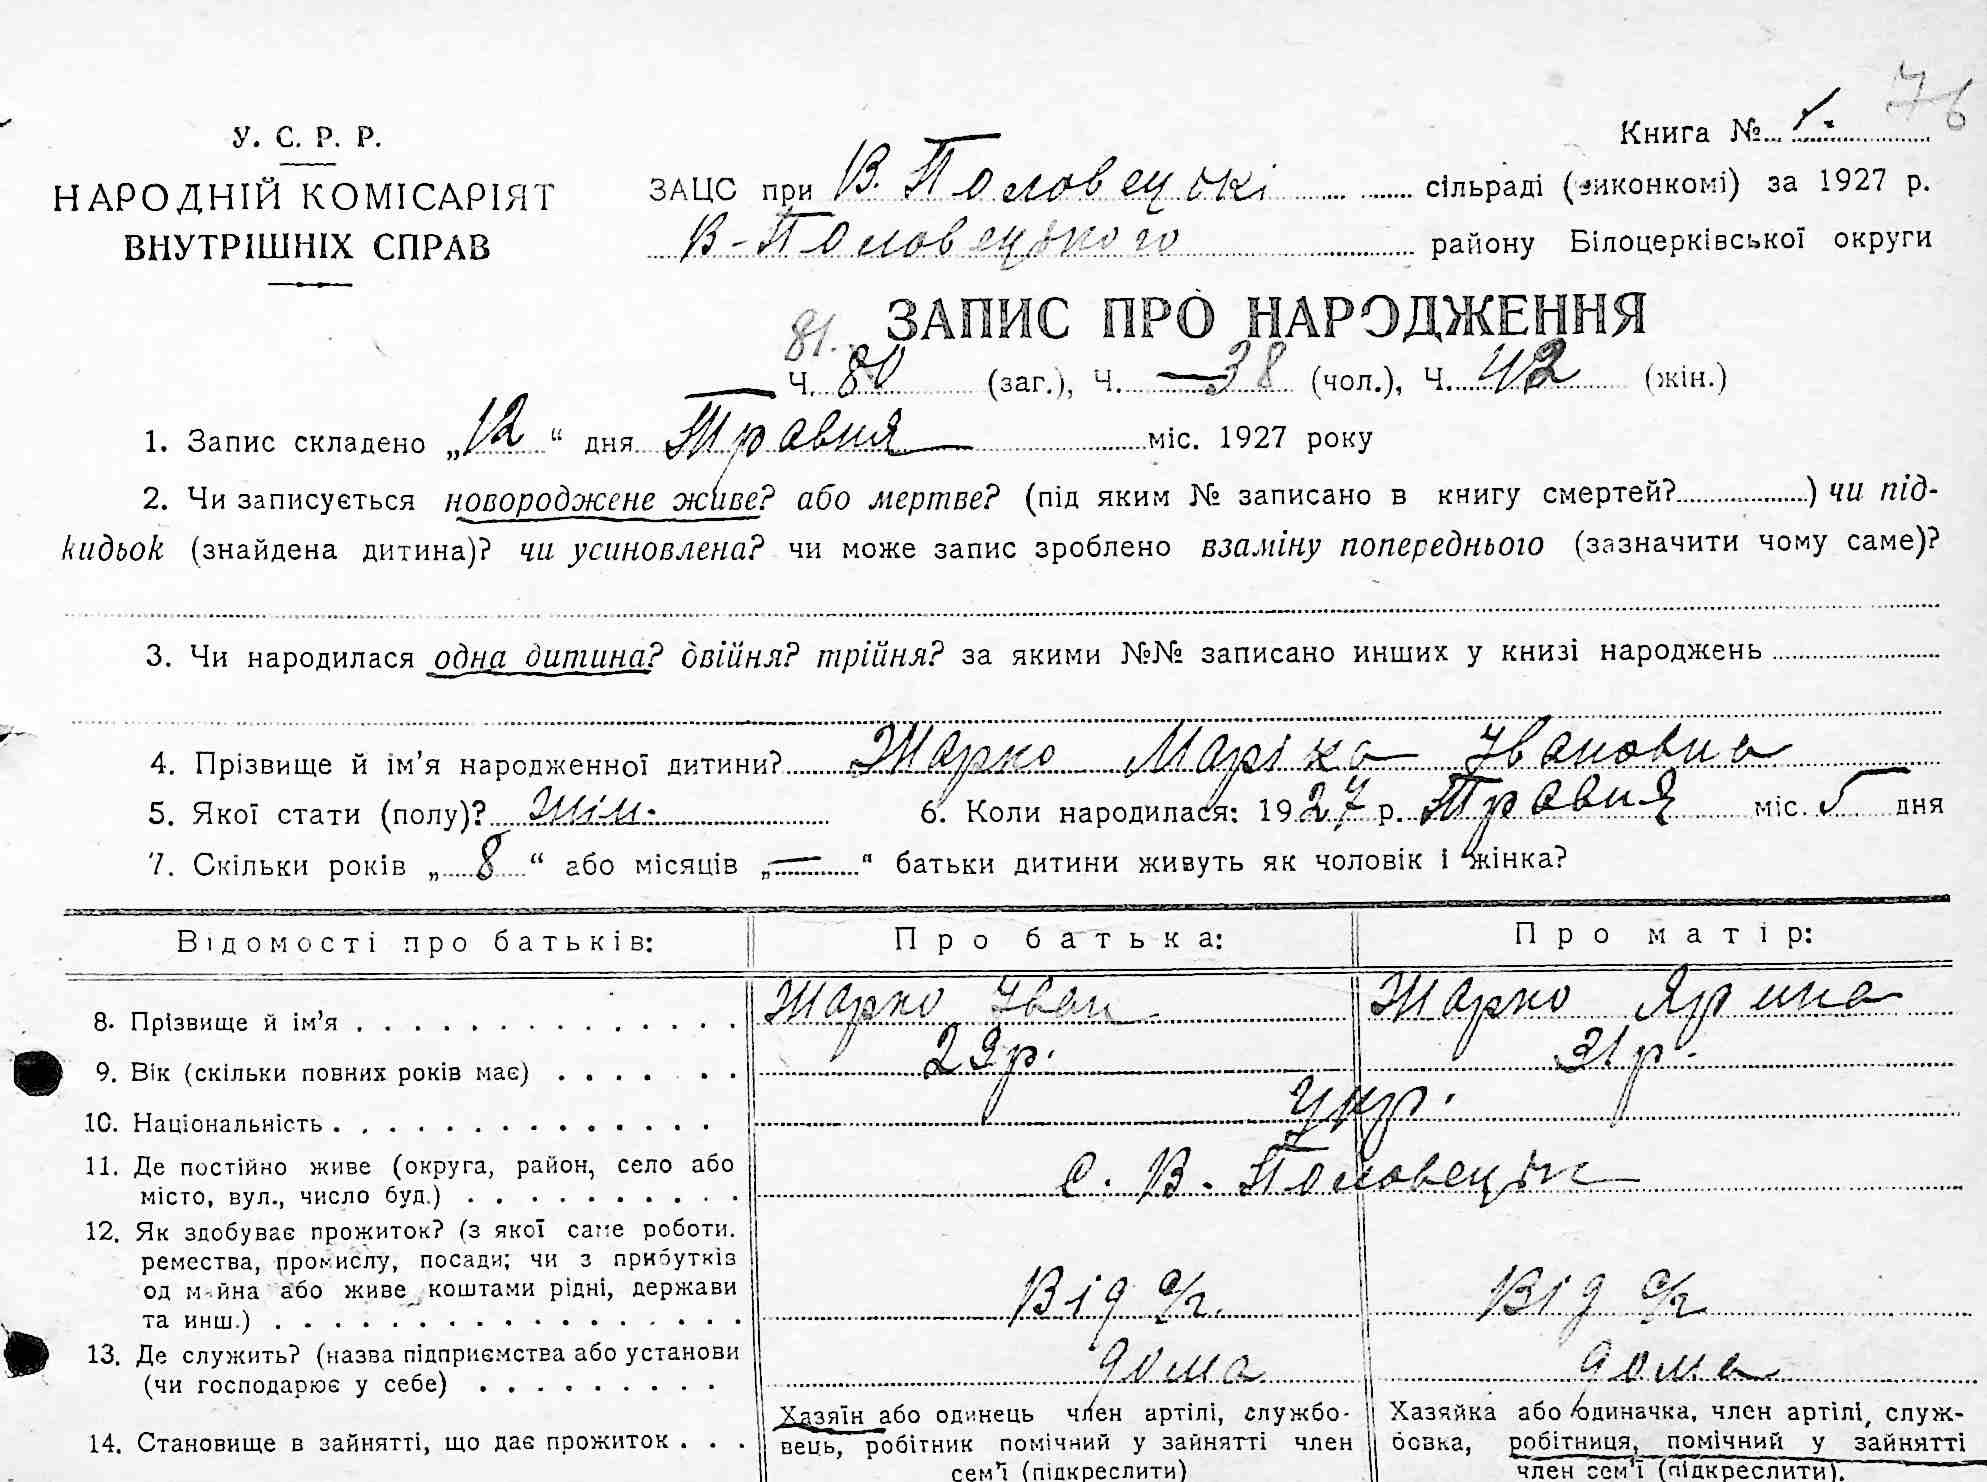 76
Книга № 1.
У. С. Р. Р.
НАРОДНІЙ КОМІСАРІЯТ
ВНУТРІШНІХ СПРАВ
ЗАЦС при В. Половецькі сільраді (виконкомі) за 1927 р.
В-Половецького району Білоцерківської округи
ЗАПИС ПРО НАРОДЖЕННЯ
81.
Ч. 80 (заг.), Ч. — 38 (чол.), Ч. 42 (жін.)
1. Запис складено „12“ дня Травня міс. 1927 року
2. Чи записується новороджене живе? або мертве? (під яким № записано в книгу смертей?) чи під-
кидьок (знайдена дитина)? чи усиновлена? чи може запис зроблено взаміну попереднього (зазначити чому саме)?
3. Чи народилася одна дитина? двійня? трійня? за якими №№ записано инших у книзі народжень
4. Прізвище й ім’я народженної дитини? Жарко Маріка Івановна
5. Якої стати (полу)? жін. 6. Коли народилася: 1927 р. Травня міс. 5 дня
7. Скільки років „8“ або місяців „—“ батьки дитини живуть як чоловік і жінка?
Відомості про батьків: Про батька: Про матір:
8. Прізвище й ім’я Жарко Іван Жарко Ярина
9. Вік (скільки повних років має) 29 р. 31 р.
10. Національність укр.
11. Де постійно живе (округа, район, село або
місто, вул., число буд.) с. В-Половецьк
12. Як здобуває прожиток? (з якої саме роботи.
ремества, промислу, посади; чи з прибутків
од майна або живе коштами рідні, держави
та инш.) Від с/г. Від с/г
13. Де служить? (назва підприємства або установи
(чи господарює у себе) дома дома
14. Становище в зайнятті, що дає прожиток
Хазяїн або одинець член артілі, службо-
вець, робітник помічний у зайнятті член
сем’ї (підкреслити)
Хазяйка або одиначка, член артілі, служ-
бовка, робітниця, помічний у зайнятті
член сем’ї (підкреслити).